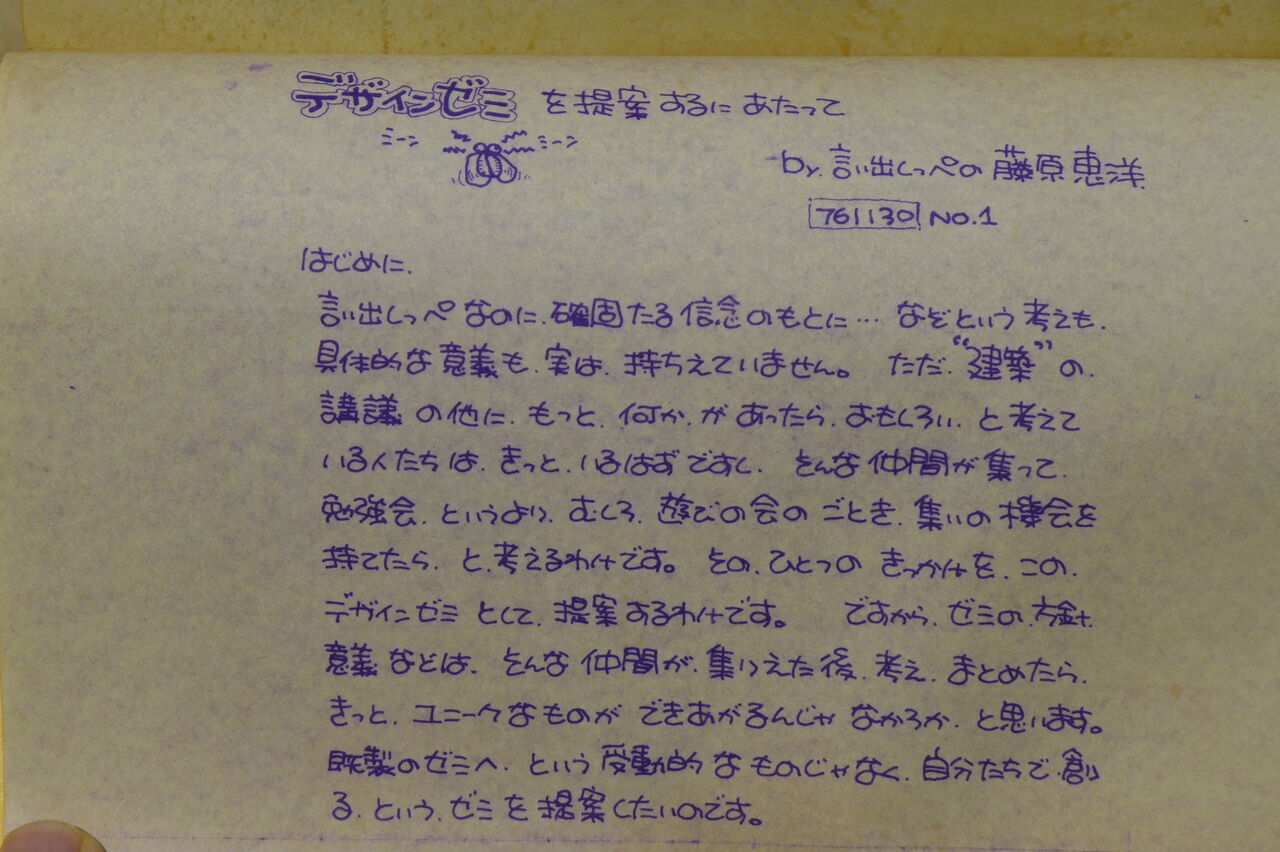 デザインゼミを提案するにあたって
ミーン ミーン
by. 言い出しっぺの藤原惠洋
761130 NO.1
はじめに.
言い出しっぺなのに.確固たる信念のもとに… などという考えも.
具体的な意義も.実は.持ちえていません。 ただ.“建築”の.
講議の他に.もっと.何か.があったら.おもしろい.と考えて
いる人たちは.きっと.いるはずですし. そんな仲間が集って.
勉強会.というより.むしろ.遊びの会のごとき.集いの機会を
持てたら.と.考えるわけです。 その.ひとつのきっかけを.この.
デザインゼミとして.提案するわけです。 ですから.ゼミの.方針.
意義などは.そんな仲間が.集りえた後.考え.まとめたら.
きっと.ユニークなものができあがるんじゃなかろか.と思います。
既製のゼミへ.という受動的なものじゃなく.自分たちで.創
る.という.ゼミを提案したいのです。